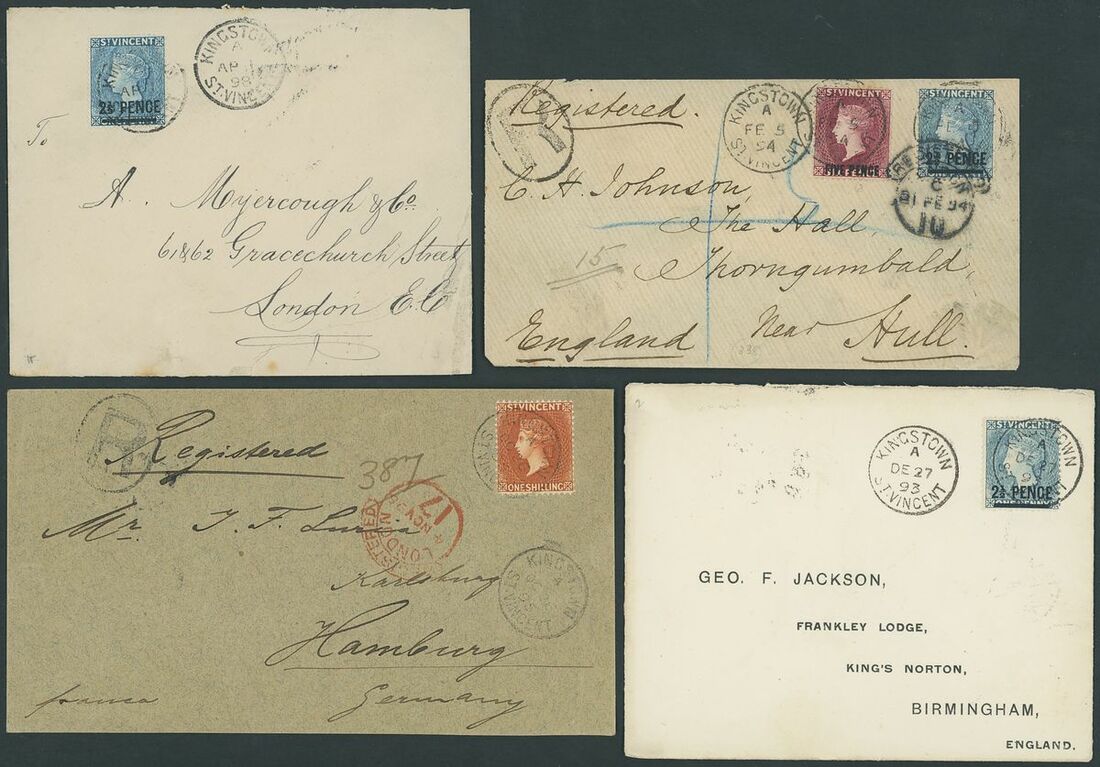 ST VINCENT
2½ PENCE
KINGSTOWN
A
AP 1
98
ST. VINCENT
To
A. Myercough & Co.
61 & 62 Gracechurch Street
London E.C
R
Registered.
KINGSTOWN
A
FE 5
94
ST. VINCENT
ST VINCENT
FIVE PENCE
ST VINCENT
2½ PENCE
C
21 FE 94
10
C. H. Johnson,
The Hall,
15
Thorngumbald,
Near Hull.
England
R
Registered
387
ST VINCENT
ONE SHILLING
Mr. J. F.
REGISTERED
LONDON
17
NOV
Karlsburg
Hamburg
Germany
KINGSTOWN
ST. VINCENT
KINGSTOWN
A
DE 27
93
ST. VINCENT
ST VINCENT
2½ PENCE
KINGSTOWN
A
DE 27
GEO. F. JACKSON,
FRANKLEY LODGE,
KING'S NORTON,
BIRMINGHAM,
ENGLAND.